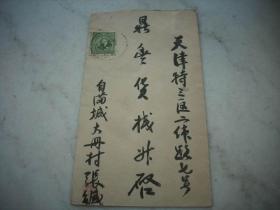 天津特三区六纬路七号
鼎丰货栈升启
自满城大册村张缄